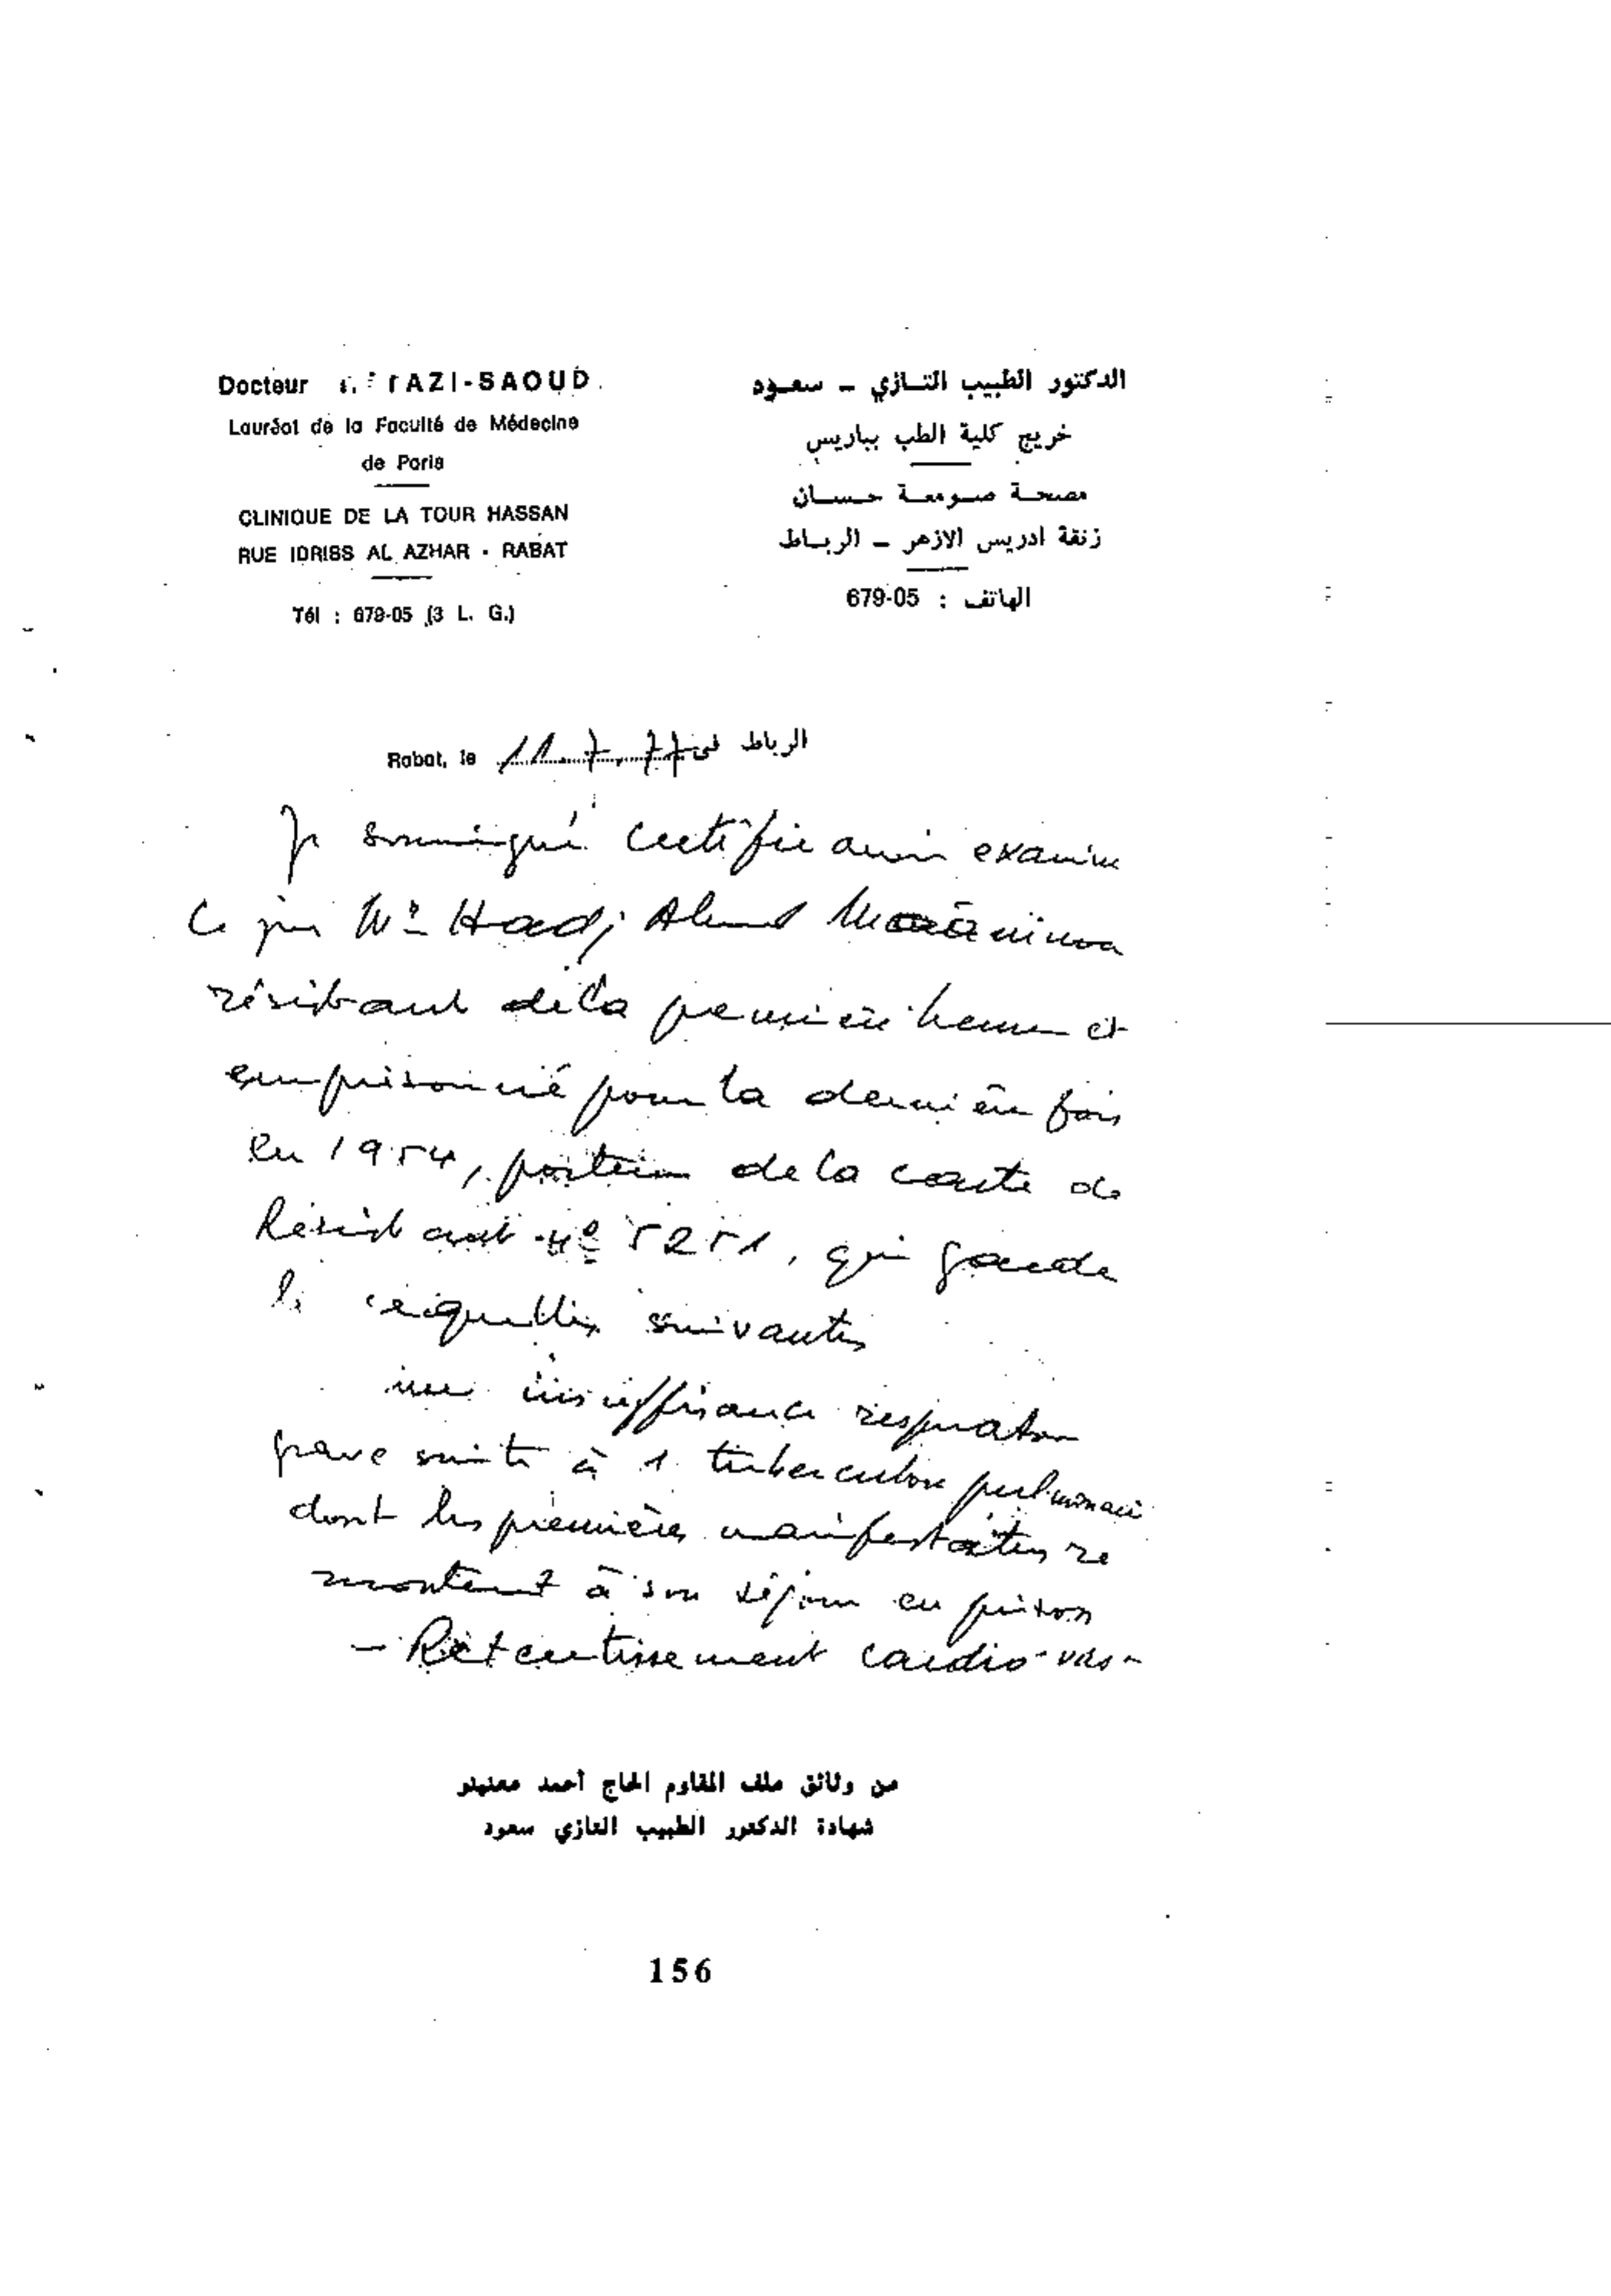 Docteur TAZI-SAOUD
Lauréat de la Faculté de Médecine
de Paris
CLINIQUE DE LA TOUR HASSAN
RUE IDRISS AL AZHAR - RABAT
Tél : 679-05 (3 L. G.)
الدكتور الطبيب التازي - سعود
خريج كلية الطب بباريس
مصحة صومعة حسان
زنقة ادريس الازهر - الرباط
الهاتف : 679-05
Rabat, le 11.7.77 الرباط في
Je soussigné certifie avoir examiné
ce jour Mr Hadj Ahmed
résistant de la première heure et
emprisonné pour la dernière fois
en 1954, porteur de la carte de
Résistant nº 5251, qui garde
les séquelles suivantes
une insuffisance respiratoire
grave suite à 1 tuberculose pulmonaire
dont les premières manifestations re
montent à son séjour en prison
- Retentissement cardio-vas-
من وثائق ملف المقاوم الحاج أحمد معنينو
شهادة الدكتور الطبيب التازي سعود
156